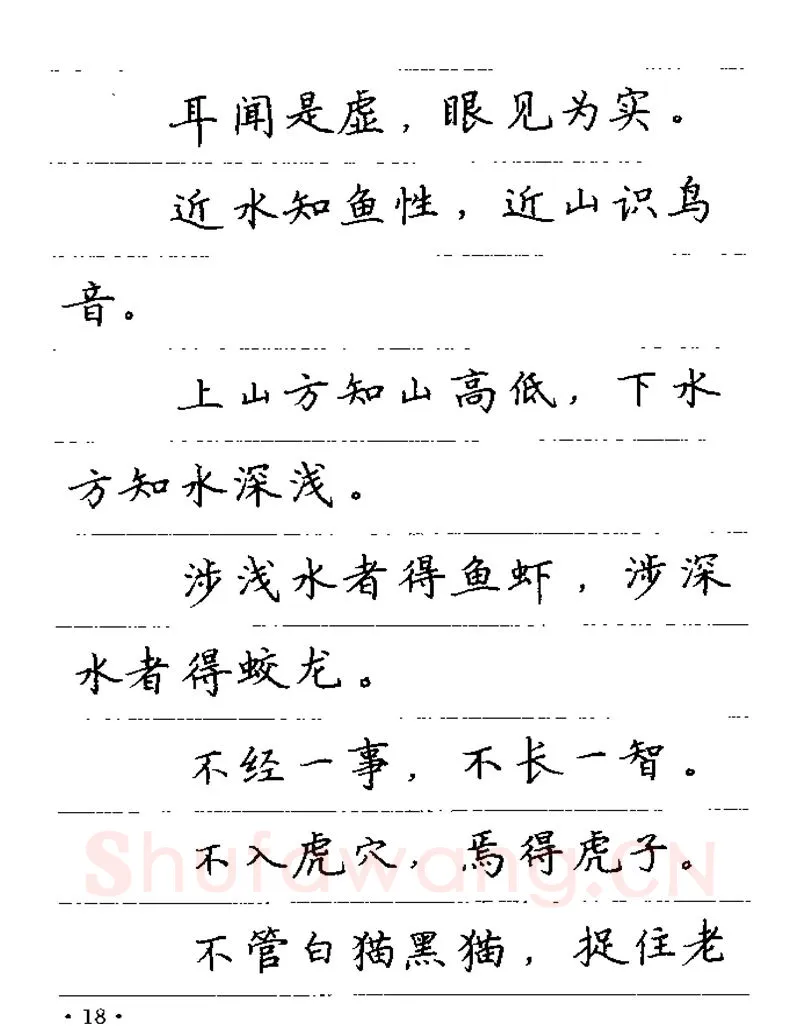 耳闻是虚，眼见为实。
近水知鱼性，近山识鸟
音。
上山方知山高低，下水
方知水深浅。
涉浅水者得鱼虾，涉深
水者得蛟龙。
不经一事，不长一智。
不入虎穴，焉得虎子。
Shufawang.CN
不管白猫黑猫，捉住老
·18·